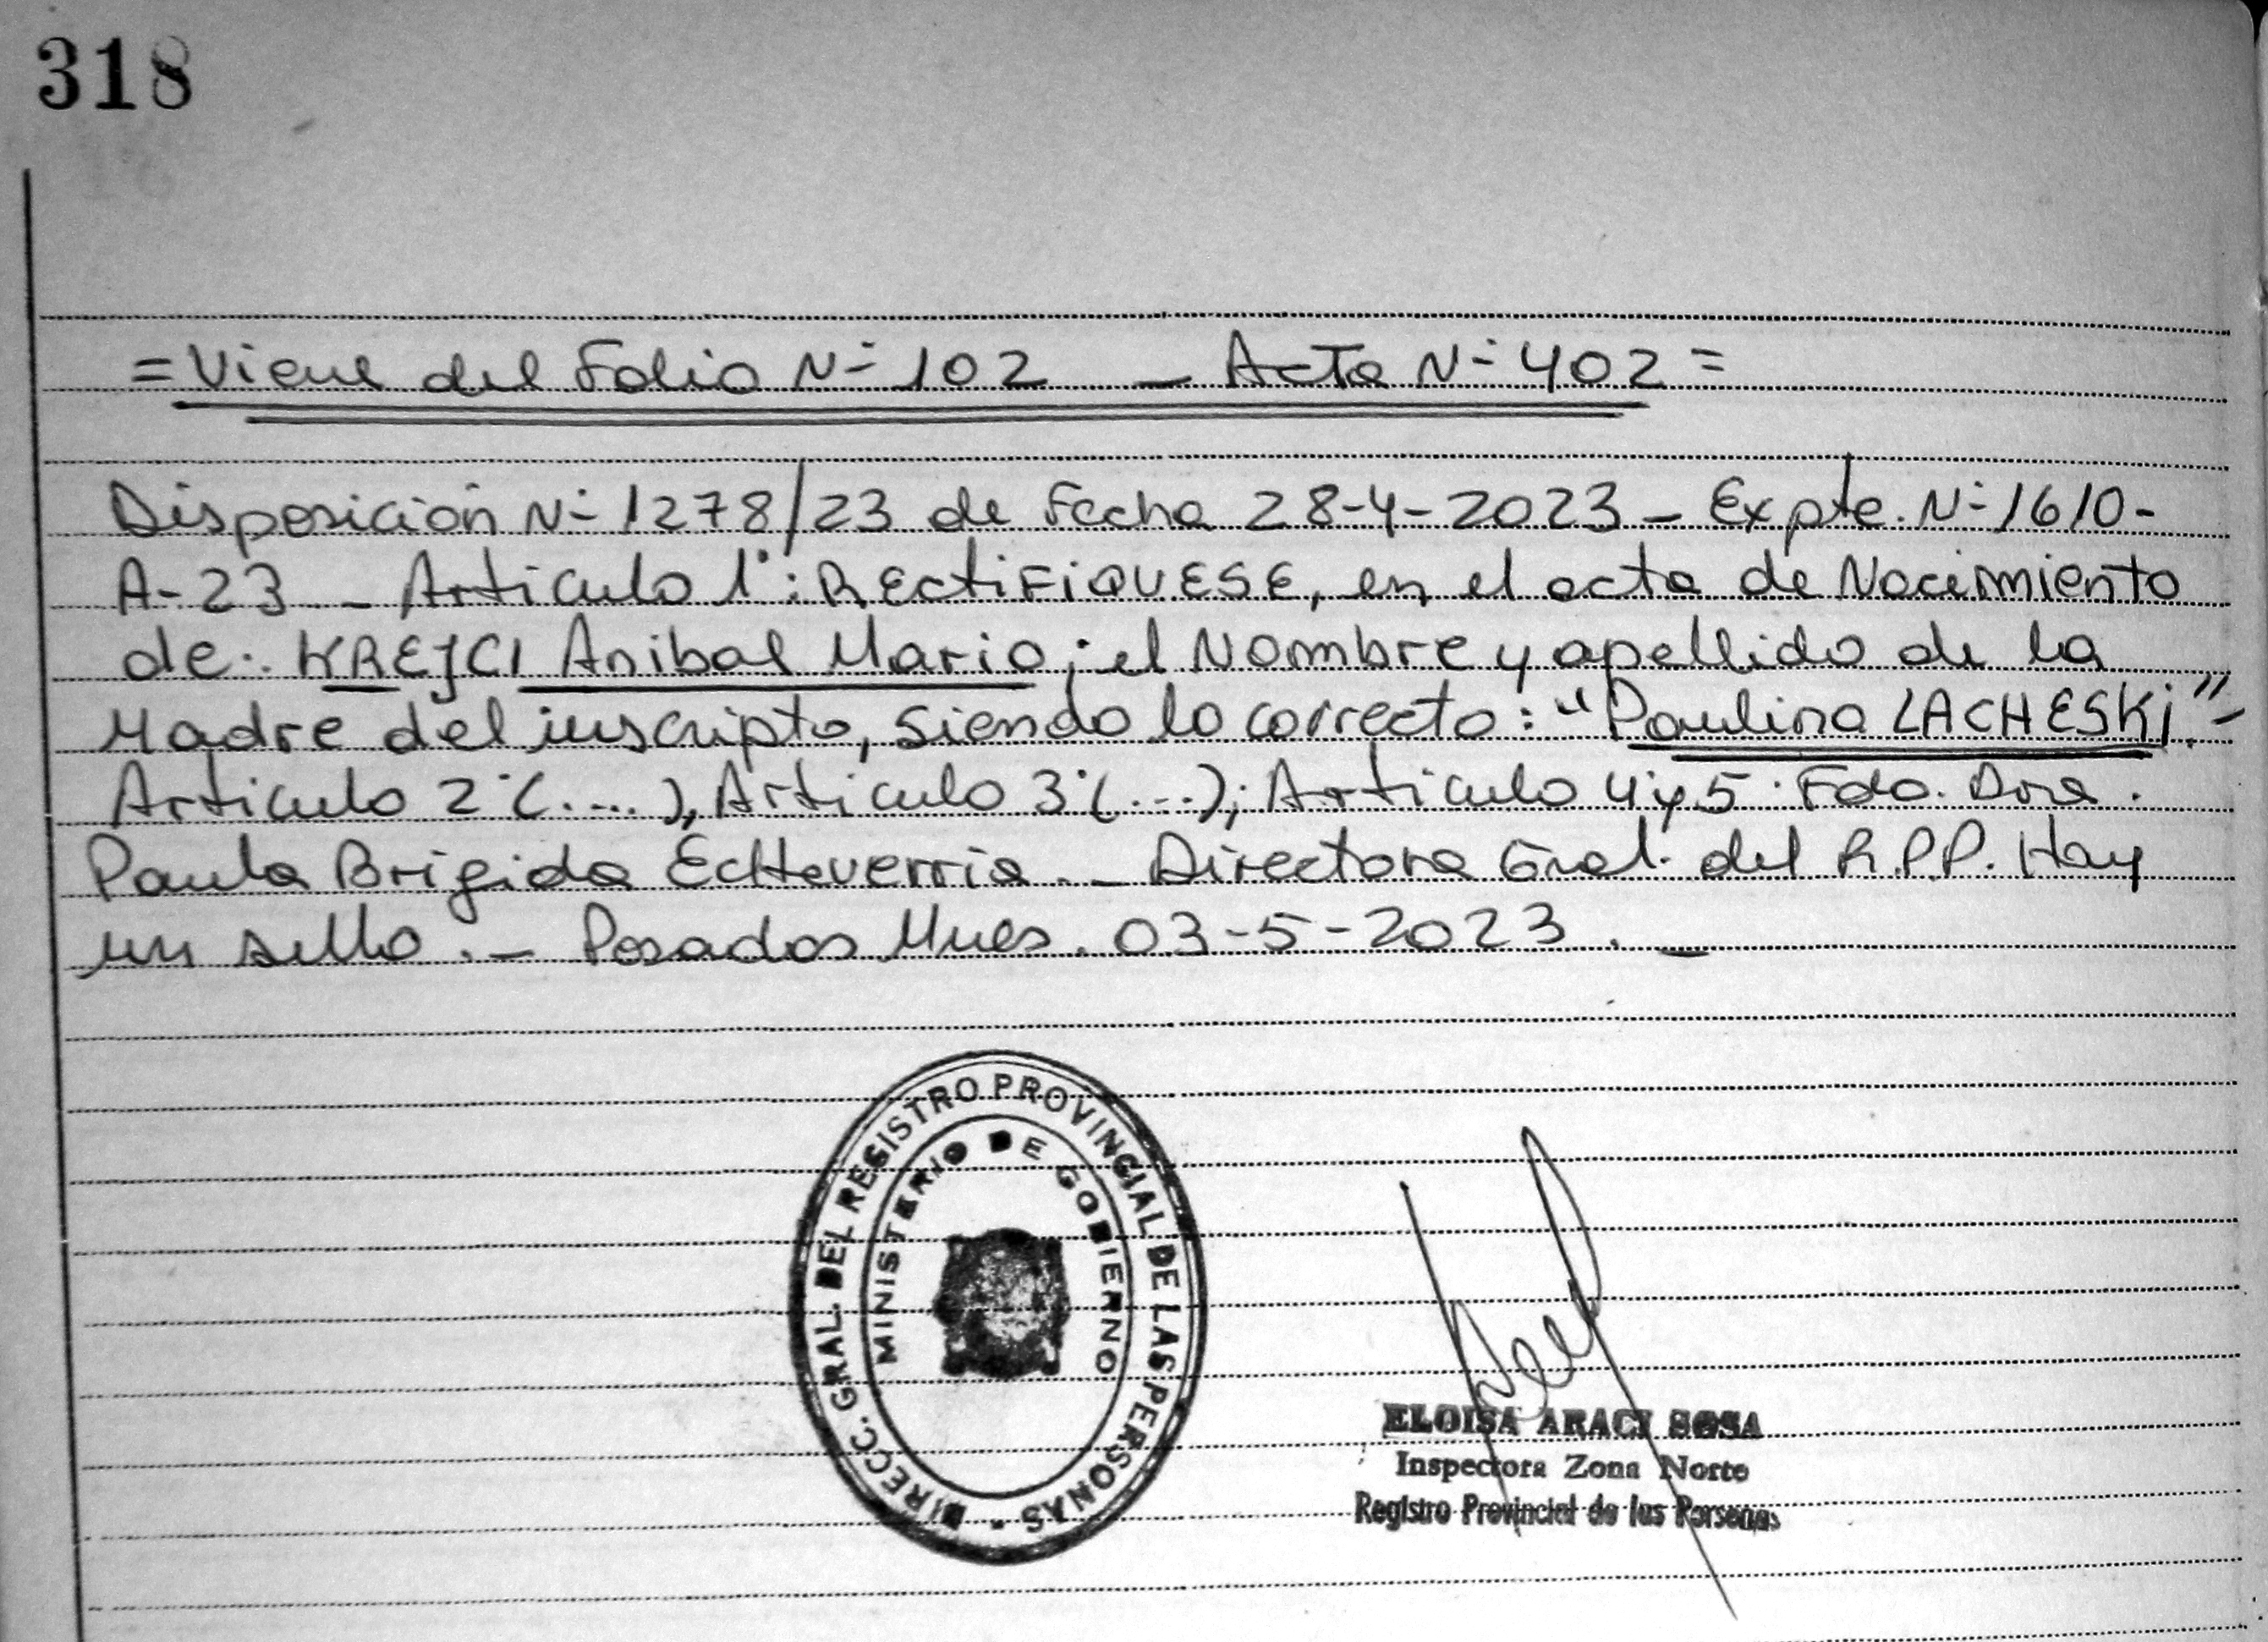 318
=Viene del Folio Nº 102 _ Acta Nº 402=
Disposición Nº 1278/23 de Fecha 28-4-2023 _ Expte. Nº 1610-
A-23 _ Artículo 1º: RECTIFIQUESE, en el acta de Nacimiento
de: KREJCI Anibal Mario; el Nombre y apellido de la
Madre del inscripto, siendo lo correcto: "Paulina LACHESKI".-
Artículo 2º(....), Artículo 3º(...); Artículo 4 y 5: Fdo. Dra.
Paula Brigida Echeverria._ Directora Gral. del R.P.P. Hay
un sello._ Posadas Mnes. 03-5-2023._
DIRECC. GRAL. DEL REGISTRO PROVINCIAL DE LAS PERSONAS
MINISTERIO DE GOBIERNO
ELOISA ARACI SOSA
Inspectora Zona Norte
Registro Provincial de las Personas